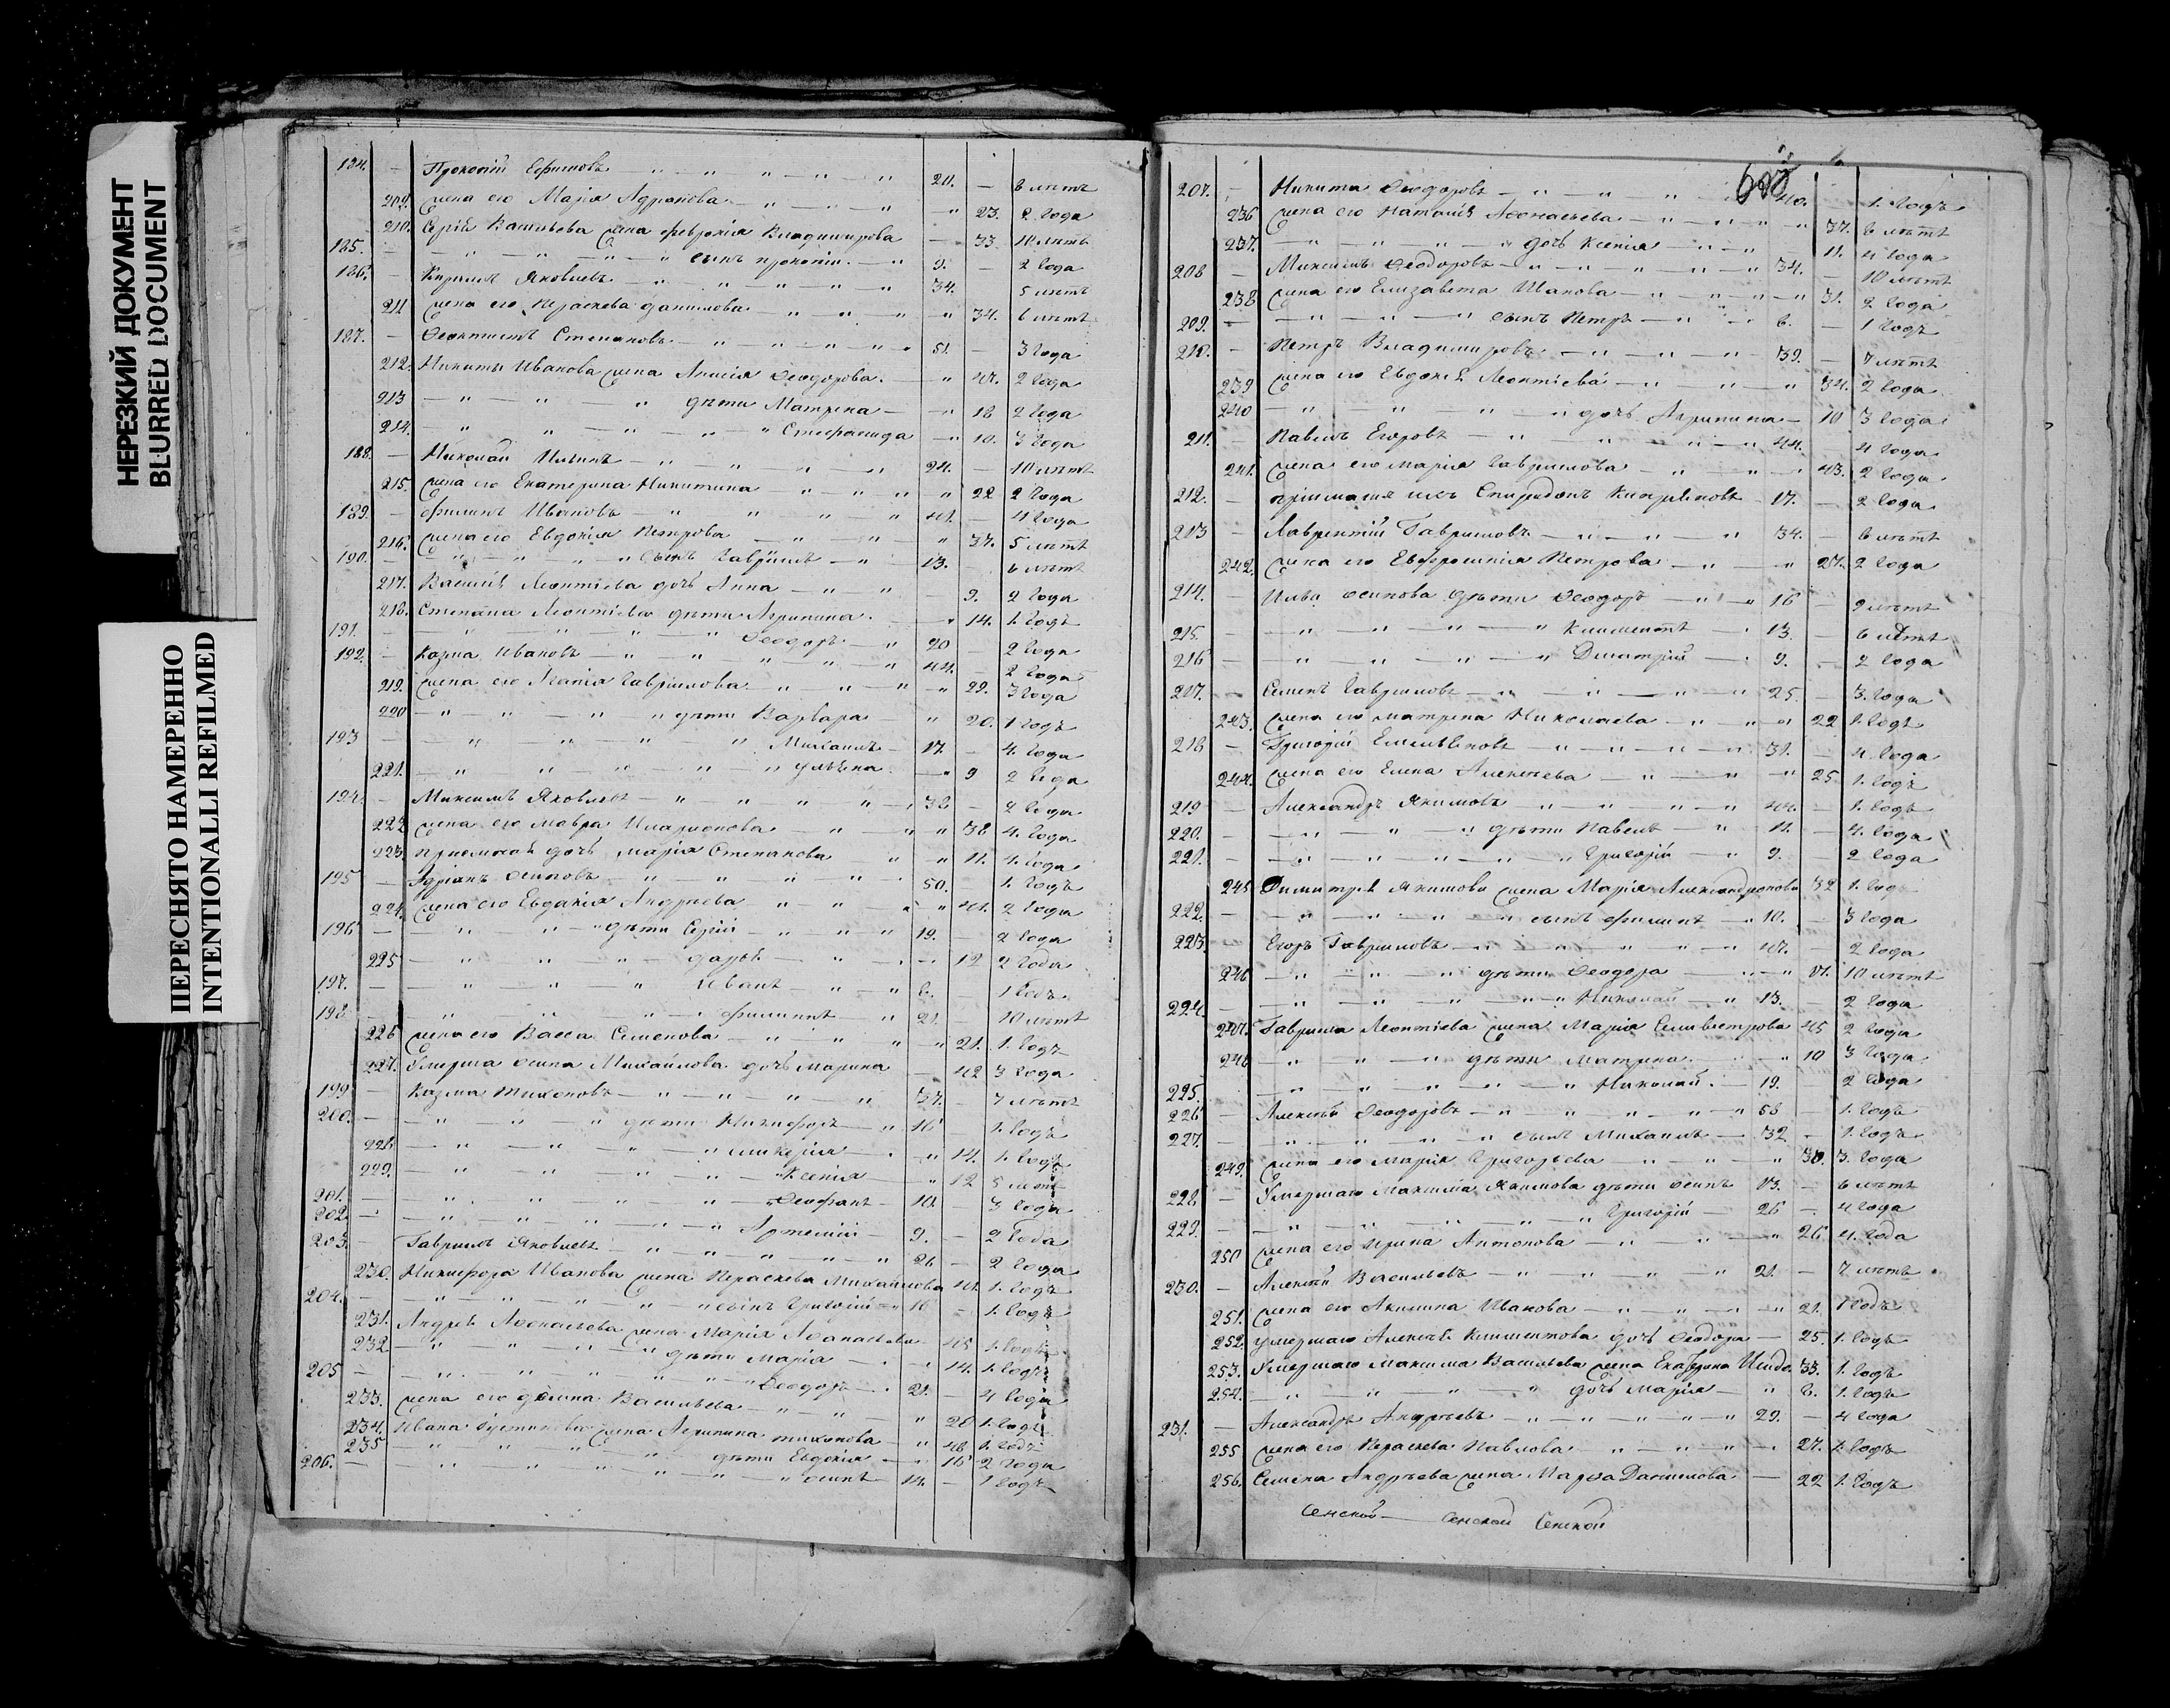 НЕРЕЗКИЙ ДОКУМЕНТ
BLURRED DOCUMENT
ПЕРЕСНЯТО НАМЕРЕННО
INTENTIONALLI REFILMED
184. — Прокопій Ефимовъ 20. — 6 лѣтъ
209. жена его Марія Адрианова 23. 2 года
210. Сергѣй Васильева жена Февронія Владимирова — 33. 10 лѣтъ
185. — сынъ Прокопій 9. — 2 года
186. — Кирилъ Яковлевъ 34. 5 лѣтъ
211 жена его Параскева Данилова 34. 6 лѣтъ
187. — Ѳеоктистъ Степановъ 51. — 3 года
212. Никиты Иванова жена Анисія Ѳеодорова 47. 2 года
213 дѣти Матрена 18 2 года
214. 10. 3 года
188. — Николай Ильинъ 24. — 10 лѣтъ
215. жена его Екатерина Никитина 22 2 года
189. — Филипъ Ивановъ 41. — 4 года
216. жена его Евдокія Петрова 37. 5 лѣтъ
190. — сынъ Гавріилъ 13. 6 лѣтъ
217. Василія Леонтіева дочь Анна 9. 2 года
218. Степана Леонтіева дѣти Агрипина 14. 1. годъ
191. — Ѳеодоръ 20 — 2 года
192. — Козма Ивановъ 44. 2 года
219. жена его Гаврилова 29. 3 года
220 дѣти Варвара 20. 1 годъ
193 Михаилъ 17. — 4. года
221. Ульяна 9 2 года
194. — Максимъ Яковлевъ 38 — 2 года
222 жена его Мавра Иларионова 38 4. года
223. дочь Марія Степанова 11. 4. года
195 — Адріанъ Осиповъ 50. — 1. годъ
224. жена его Евдокія Андреева 41. 2 года
196 — дѣти Сергій 19. — 2 года
225 Дарья 12 2 года
197. — Иванъ 6. — 1 годъ
198. — Филиппъ 21. 10 лѣтъ
226 жена его Васса Семенова 21. 1. годъ
227. Умерша Осипа Михайлова дочь Марина — 42 3 года
199 — Козма Тихоновъ 37. — 7 лѣтъ
200. — дѣти Никифоръ 16 1. годъ
228. Гликерія 14. 1. годъ
229. Ксенія 12 5 лѣтъ
201. — Ѳеофанъ 10. — 3 года
202. — Артемій 9. — 2 года
203. — Гаврилъ Яковлевъ 26 — 2 года
230. Никифора Иванова жена Параскева Михайлова 41. 1. годъ
204. — сынъ Григорій 16 — 1. годъ
231. Андрея Аѳонасьева жена Марія Аѳанасьева 45 1. годъ
232. дѣти Марія 14. 1. годъ
205 — Ѳеодоръ 21. — 4 года
233. жена его Васильева 20 1. годъ
234. Ивана жена Агрипина Тихонова 46 1. годъ
235 дѣти Евдокія 16 2 года
206. — Осипъ 14. — 1 годъ
207. — Никита Ѳеодоровъ 40. — 1. годъ
236 жена его Наталія Аѳонасьева 37. 6 лѣтъ
237. дочь Ксенія 11. 4 года
208 — Максимъ Ѳеодоровъ 34. — 10 лѣтъ
238 жена его Елизавета Иванова 31. 2 года
209. — сынъ Петръ 6. — 1 годъ
210. — Петръ Владимировъ 39. — 7 лѣтъ
239 жена его Евдокія Леонтіева 34. 2 года
240 дочь Агрипина 10 3 года
211. — Павелъ Егоровъ 44. 4 года
241. жена его Марія Гаврилова 43. 2 года
212. — Спиридонъ 17. — 2 года
213 — Лаврентій Гавриловъ 34. — 6 лѣтъ
242. жена его Евфросинія Петрова 27. 2 года
214. — Ильи Осипова дѣти Ѳеодоръ 16 — 9 лѣтъ
215. — Климентъ 13. 6 лѣтъ
216 — Дмитрій 9. — 2 года
217. — Семенъ Гавриловъ 25. — 3. года
243. жена его Матрена Николаева 22 1. годъ
218 — Григорій 31. — 4 года
244. жена его Елена Алексѣева 25. 1. годъ
219 — Александръ Якимовъ 47. — 1. годъ
220. — дѣти Павелъ 11. — 4. года
221. — Григорій 9. — 2 года
245 Димитрія Якимова жена Марія 32 1. годъ
222. — сынъ Филипъ 10. — 3 года
223. Егоръ Гавриловъ 47. — 2 года
246 дѣти Ѳеодора 17. 10 лѣтъ
224. — Николай 13. — 2 года
247. Гаврила Леонтіева жена Марія Селивестрова 45 2 года
248 дѣти Матрена 10 3 года
225. Николай 19. 2 года
226 — Алексѣй Ѳеодоровъ 53 1. годъ
227. — сынъ Михаилъ 32 — 1. годъ
249. жена его Марія Григорьева 30. 3. года
228 — Умершаго Максима Якимова дѣти Осипъ 13. — 6 лѣтъ
229. — Григорій 26 — 4 года
250 жена его Ирина Антонова 26 4. года
230. — Алексѣй Васильевъ 21. — 7 лѣтъ
251. жена его Акилина Иванова 21. 1 годъ
252. Умершаго Алексѣя Климентова дочь Ѳеодора — 25. 1. годъ
253. Умершаго Максима Васильева жена Екатерина 33. 1. годъ
254. дочь Марія 6. 1. годъ
231. — Александръ Андреевъ 29. — 4 года
255 жена его Параскева Павлова 27. 1. годъ
256. Семена Андреева жена Марѳа Данилова — 22 1. годъ